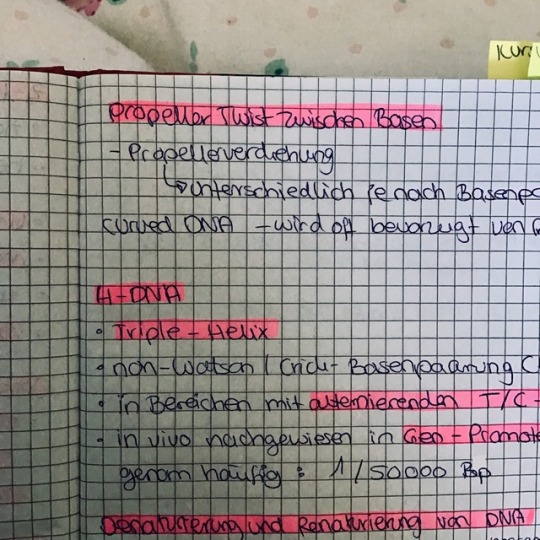 Kurv
Propeller Twist zwischen Basen
- Propellerverdrehung
↳ unterschiedlich je nach Basenpa
curved DNA - wird oft bevorzugt von
H-DNA
• Triple-Helix
• non-Watson / Crick-Basenpaarung C
• in Bereichen mit alternierenden T/C-
• in vivo nachgewiesen in Gen-Promote
genom häufig: 1/50000 Bp
Denaturierung und Renaturierung von DNA